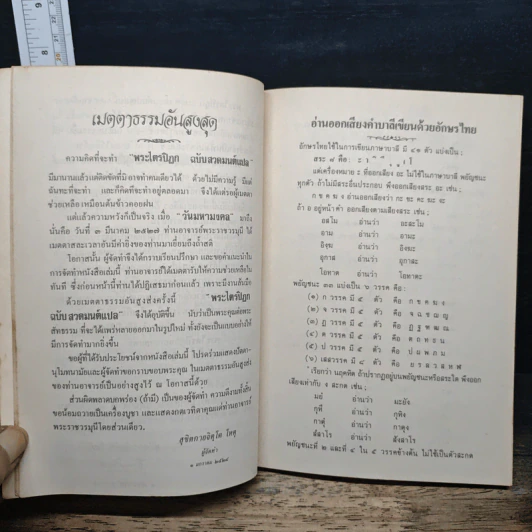 เมตตาธรรมอันสูงสุด
ความคิดที่จะทำ "พระไตรปิฎก ฉบับสวดมนต์แปล"
มีมานานแล้วแต่คิดขัดที่มิอาจทำคนเดียวได้ ด้วยไม่มีความรู้ มีแต่
ฉันทะที่จะทำ และก็คิดที่จะทำอยู่ตลอดมา จึงได้แต่รอผู้เมตตา
ช่วยเหลือ เหมือนต้นข้าวคอยฝน
แต่แล้วความหวังก็เป็นจริง เมื่อ "วันมหามงคล" มาถึง
นั่นคือ วันที่ ๓ มีนาคม ๒๕๒๗ ท่านอาจารย์พระราชวรมุนี ได้
เมตตาสละเวลาอันมีค่ายิ่งของท่านมาเยี่ยมถึงถ้ำสติ
โอกาสนั้น ผู้จัดทำจึงได้กราบเรียนปรึกษา และขอคำแนะนำใน
การจัดทำหนังสือเล่มนี้ ท่านอาจารย์ก็ได้เมตตารับให้ความช่วยเหลือใน
ทันที ซึ่งก่อนหน้านี้ท่านได้ปฏิเสธมาก่อนแล้ว เพราะมีงานรับอีก
ด้วยเมตตาธรรมอันสูงส่งครั้งนี้ "พระไตรปิฎก
ฉบับ สวดมนต์แปล" จึงได้อุบัติขึ้น นับว่าเป็นพระคุณต่อพระ
สัทธรรม ที่จะได้แพร่หลายออกมาในรูปใหม่ ทั้งยังจะเป็นแบบอย่างให้
มีการจัดทำมากยิ่งขึ้น
ขอผู้ที่ได้รับประโยชน์จากหนังสือเล่มนี้ โปรดร่วมแสดงปัตตา-
นุโมทนามัย และผู้จัดทำขอกราบขอบพระคุณ ในเมตตาธรรมอันสูงส่ง
ของท่านอาจารย์เป็นอย่างสูงไว้ ณ โอกาสนี้ด้วย
ส่วนผิดพลาดบกพร่อง (ถ้ามี) เป็นของผู้จัดทำ ความดีงามทั้งสิ้น
ขอน้อมถวายเป็นเครื่องบูชา และแสดงกตเวทิตาคุณแด่ท่านอาจารย์
พระราชวรมุนีโดยส่วนเดียว.
ผู้จัดทำ
อ่านออกเสียงคำบาลีเขียนด้วยอักษรไทย
อักษรไทยใช้ในการเขียนภาษาบาลี มี ๔๑ ตัว แบ่งเป็น:
สระ ๘ คือ:
แต่เครื่องหมาย ะ ที่ออกเสียง อะ ไม่ใช้ในภาษาบาลี พยัญชนะ
ทุกตัว ถ้าไม่มีสระอื่นประกอบ พึงออกเสียงสระ อะ เช่น;
ก ข ค ฆ ง อ่านออกเสียงว่า กะ ขะ คะ ฆะ งะ
ถ้า อ อยู่หน้าคำ ออกเสียงตามเสียงสระ เช่น;
อสโม อ่านว่า อะสะโม
อาม อ่านว่า อามะ
อิงฺฆ อ่านว่า อิงฆะ
อุกาส อ่านว่า อุกาสะ
โอหาต อ่านว่า โอหาตะ
พยัญชนะ ๓๓ แบ่งเป็น ๖ วรรค คือ:
(๑) ก วรรค มี ๕ ตัว คือ ก ข ค ฆ ง
(๒) จ วรรค มี ๕ ตัว คือ จ ฉ ช ฌ ญ
(๓) ฏ วรรค มี ๕ ตัว คือ ฏ ฐ ฑ ฒ ณ
(๔) ต วรรค มี ๕ ตัว คือ ต ถ ท ธ น
(๕) ป วรรค มี ๕ ตัว คือ ป ผ พ ภ ม
(๖) เศสวรรค มี ๘ ตัว คือ ย ร ล ว ส ห ฬ ํ
ํ เรียกว่า นฤคหิต ถ้าปรากฏอยู่บนพยัญชนะหรือสระใด พึงออก
เสียงเท่ากับ ง สะกด เช่น;
มยํ อ่านว่า มะยัง
กุหึ อ่านว่า กุหิง
กาตุํ อ่านว่า กาตุง
สํสาโร อ่านว่า สังสาโร
พยัญชนะที่ ๒ และที่ ๔ ใน ๕ วรรคข้างต้น ไม่ใช้เป็นตัวสะกด